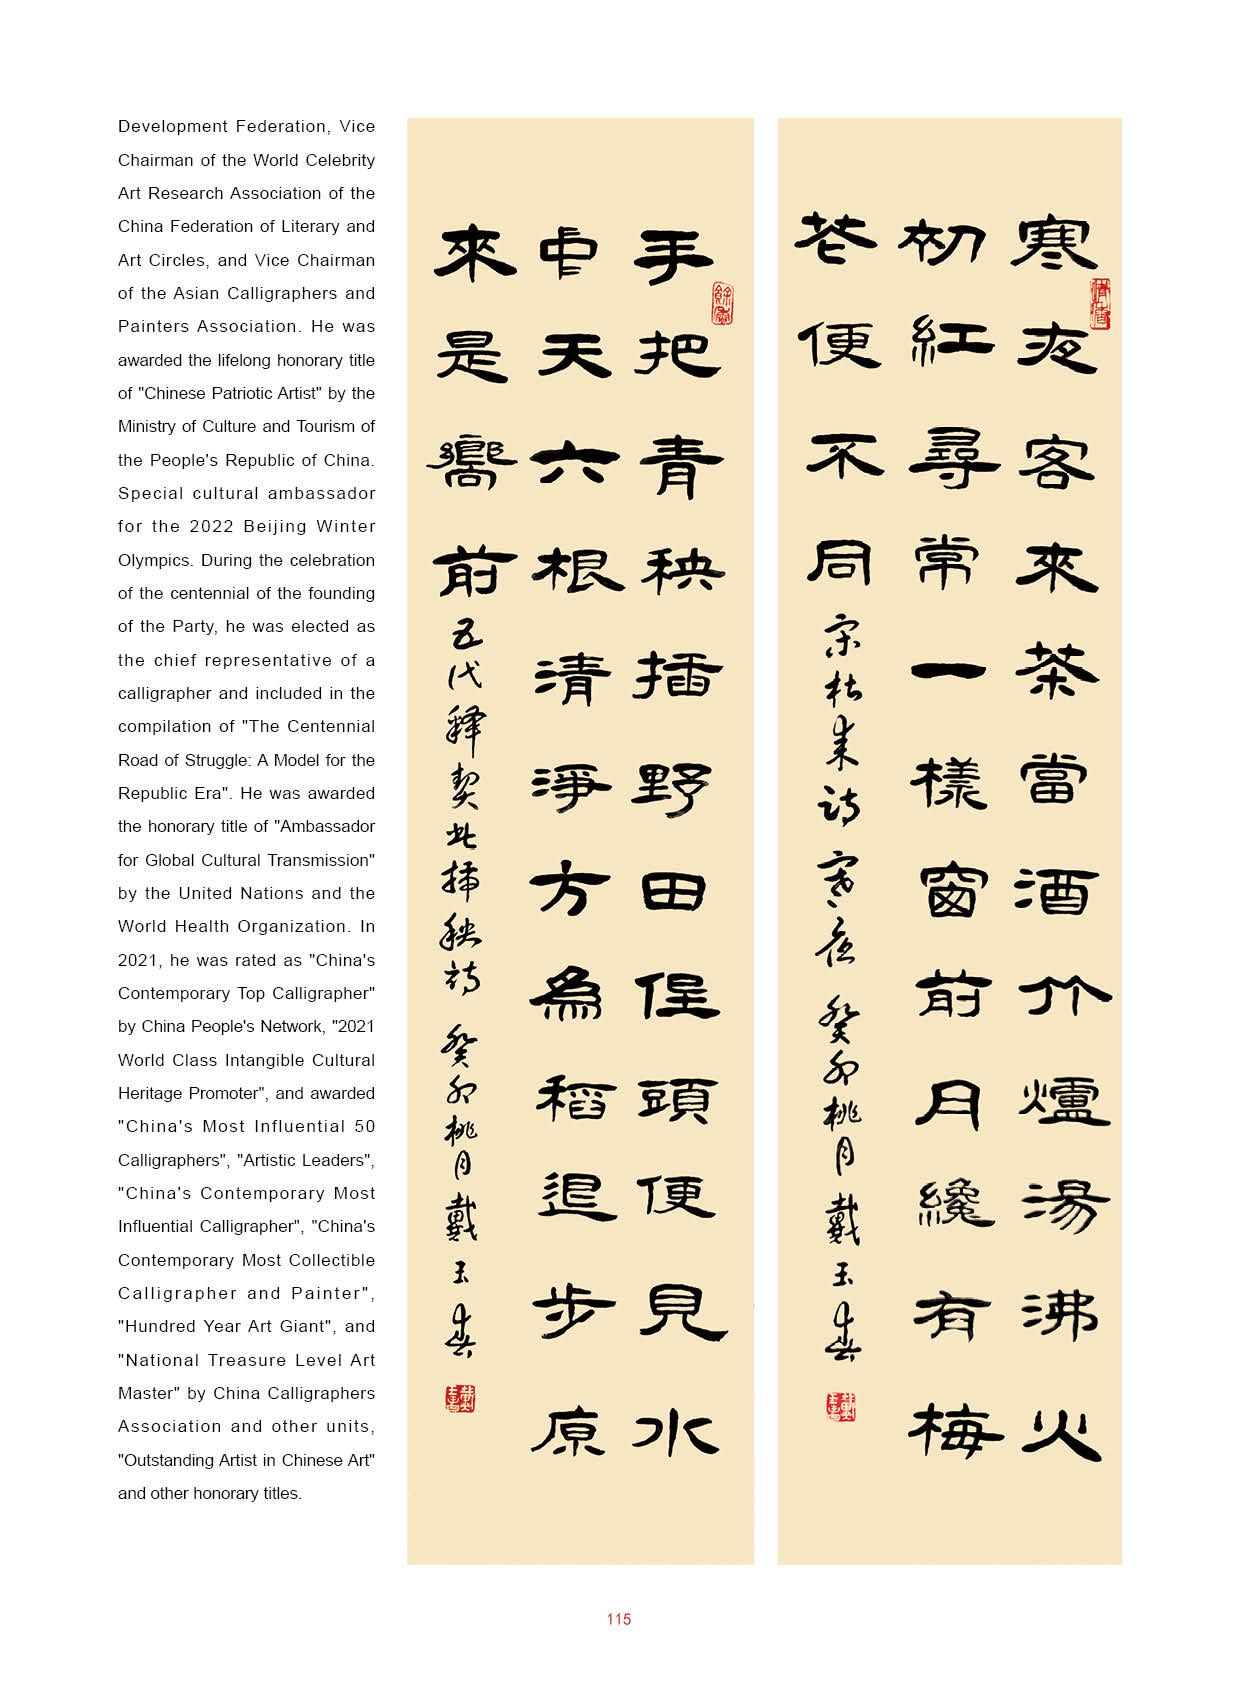 Development Federation, Vice
Chairman of the World Celebrity
Art Research Association of the
China Federation of Literary and
Art Circles, and Vice Chairman
of the Asian Calligraphers and
Painters Association. He was
awarded the lifelong honorary title
of "Chinese Patriotic Artist" by the
Ministry of Culture and Tourism of
the People's Republic of China.
Special cultural ambassador
for the 2022 Beijing Winter
Olympics. During the celebration
of the centennial of the founding
of the Party, he was elected as
the chief representative of a
calligrapher and included in the
compilation of "The Centennial
Road of Struggle: A Model for the
Republic Era". He was awarded
the honorary title of "Ambassador
for Global Cultural Transmission"
by the United Nations and the
World Health Organization. In
2021, he was rated as "China's
Contemporary Top Calligrapher"
by China People's Network, "2021
World Class Intangible Cultural
Heritage Promoter", and awarded
"China's Most Influential 50
Calligraphers", "Artistic Leaders",
"China's Contemporary Most
Influential Calligrapher", "China's
Contemporary Most Collectible
Calligrapher and Painter",
"Hundred Year Art Giant", and
"National Treasure Level Art
Master" by China Calligraphers
Association and other units,
"Outstanding Artist in Chinese Art"
and other honorary titles.
寒夜客來茶當酒竹爐湯沸火
初紅尋常一樣窗前月纔有梅
花便不同 宋杜耒詩 寒夜 癸卯桃月 戴玉春
手把青秧插野田低頭便見水
中天六根清淨方為稻退步原
來是嚮前 五代釋契此插秧詩 癸卯桃月 戴玉春
115